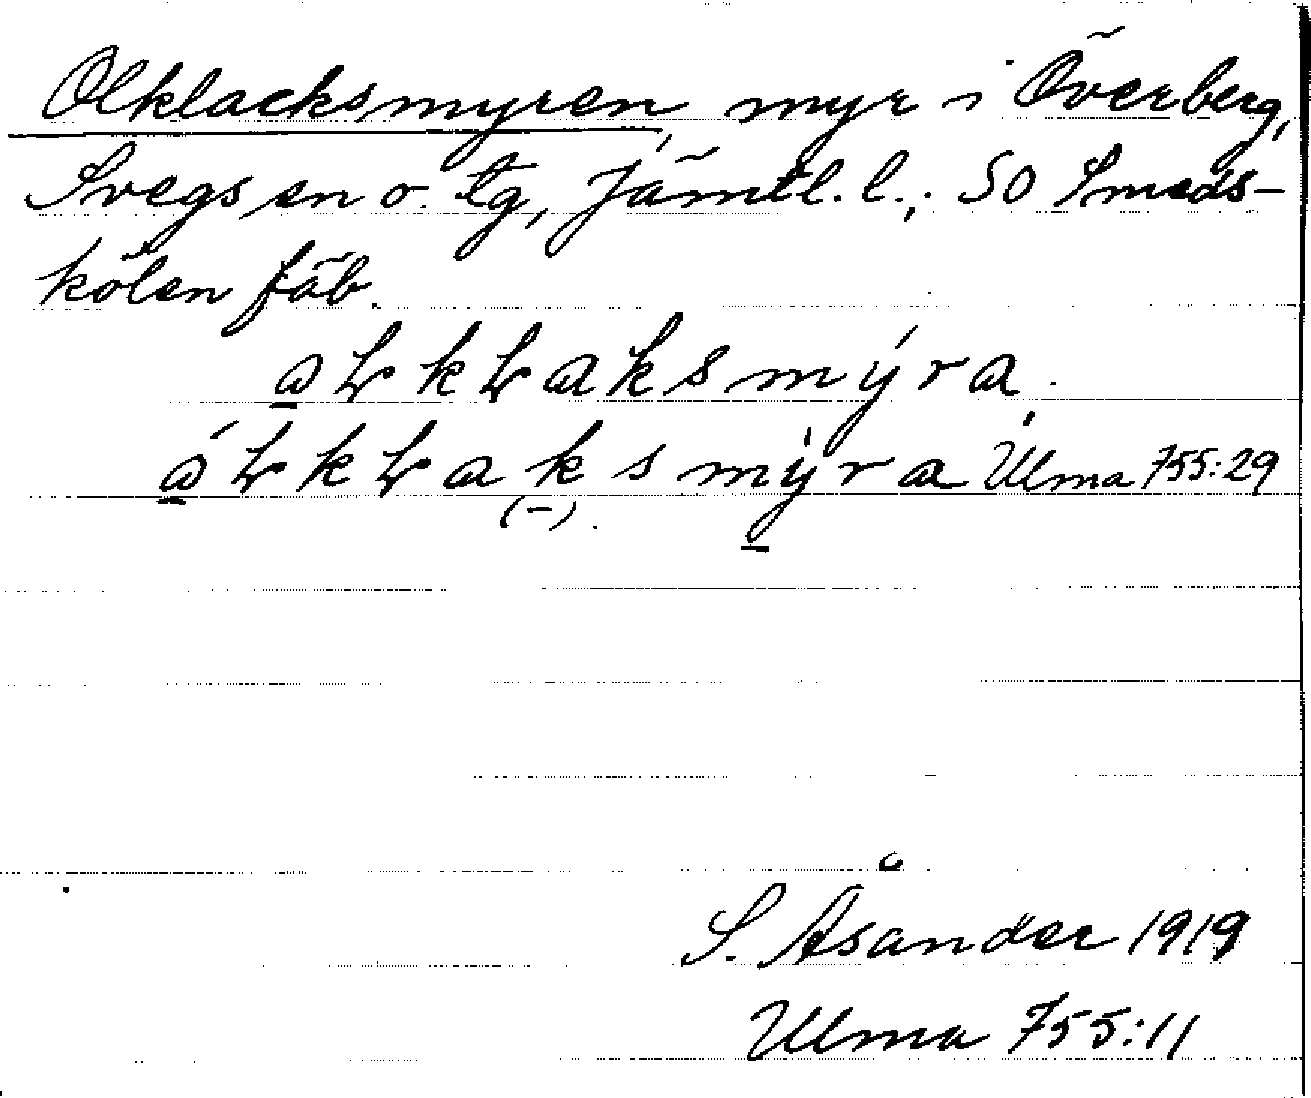 Olklacksmyren, myr i Överberg,
Svegs sn o. tg, Jämtl. l.; SO Smeds-
kölen fäb.
aLkLaksmýra.
áLkLaksmyra Ulma 755:29
(-).
S. Åsander 1919
Ulma 755:11